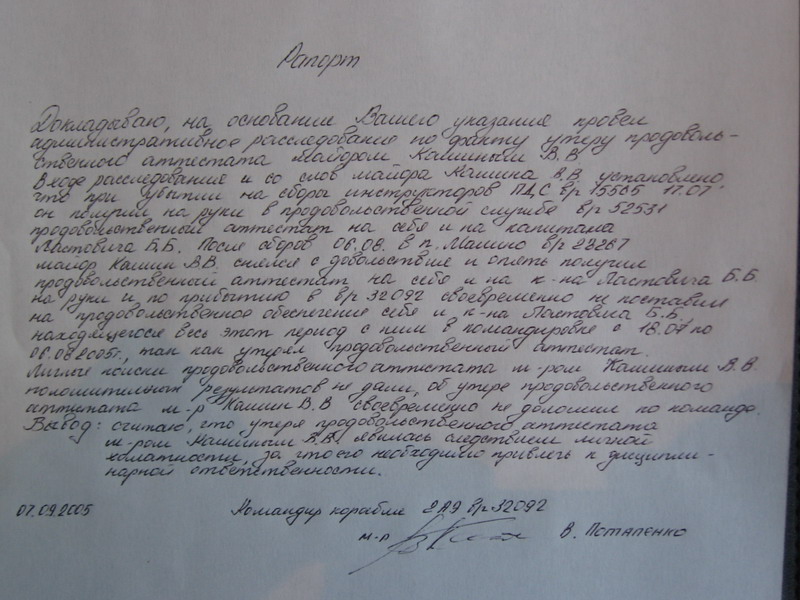 Рапорт
Докладываю, на основание Вашего указания провел
административное расследование по факту утеру продоволь-
ственного аттестата майором Кашиным В.В
В ходе расследование и со слов майора Кашина В.В. установлено,
что при убытии на сборы инструкторов ПДС в/ч 15565 17.07
он получил на руки в продовольственной службе в/ч 52531
продовольственный аттестат на себя и на капитана
Ластовича Б.Б. После сборов 06.08. в п. в/ч 23267
майор Кашин В.В. снялся с довольствие и опять получил
продовольственный аттестат на себя и на к-на Ластовича Б.Б.
на руки и по прибытию в в/ч 32092 своевременно не поставил
на продовольственное обеспечение себя и к-на Ластовича Б.Б.,
находящегося весь этот период с ним в командировке с 18.07 по
06.08.2005г., так как утерял продовольственный аттестат.
Личные поиски продовольственного аттестата м-ром Кашиным В.В.
положительных результатов не дали, об утере продовольственного
аттестата м-р Кашин В.В своевременно не доложил по команде.
Вывод: считаю, что утеря продовольственного аттестата
м-ром Кашиным В.В. явилась следствием личной
халатности, за что его необходимо привлечь к дисципли-
нарной ответственности.
07.09.2005 Командир корабля 2АЭ в/ч 32092
м-р В. Потапенко